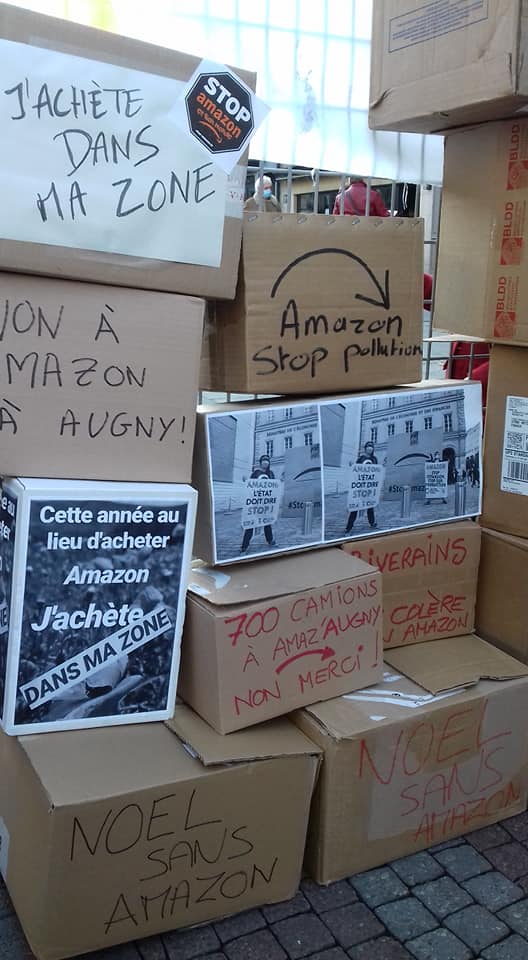 J'ACHÈTE
DANS
MA ZONE
STOP
amazon
et son monde
Amazon
Stop pollution
BLDD
BLDD
BLDD
NON À
AMAZON
À AUGNY!
AMAZON:
L'ÉTAT
DOIT DIRE
STOP!
AMAZON:
L'ÉTAT
DOIT DIRE
STOP!
Cette année au
lieu d'acheter
Amazon
J'achète
DANS MA ZONE
RIVERAINS
COLÈRE
AMAZON
700 CAMIONS
À AMAZ'AUGNY
NON MERCI!
NOEL
SANS
AMAZON
NOEL
SANS
AMAZON